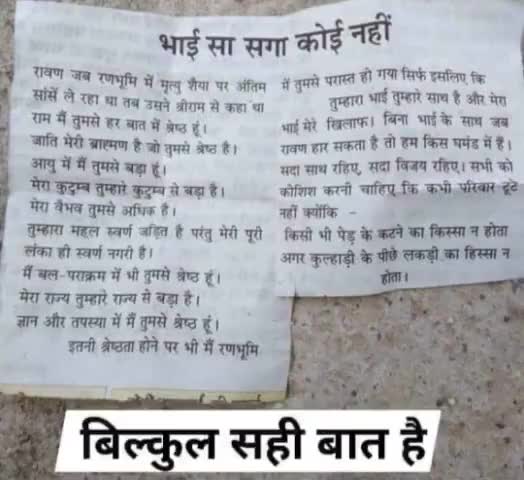 भाई सा सगा कोई नहीं
रावण जब रणभूमि में मृत्यु शैया पर अंतिम
सांसें ले रहा था तब उसने श्रीराम से कहा था
राम मैं तुमसे हर बात में श्रेष्ठ हूं।
जाति मेरी ब्राह्मण है जो तुमसे श्रेष्ठ है।
आयु में मैं तुमसे बड़ा हूं।
मेरा कुटुम्ब तुम्हारे कुटुम्ब से बड़ा है।
मेरा वैभव तुमसे अधिक है।
तुम्हारा महल स्वर्ण जड़ित है परंतु मेरी पूरी
लंका ही स्वर्ण नगरी है।
मैं बल-पराक्रम में भी तुमसे श्रेष्ठ हूं।
मेरा राज्य तुम्हारे राज्य से बड़ा है।
ज्ञान और तपस्या में मैं तुमसे श्रेष्ठ हूं।
इतनी श्रेष्ठता होने पर भी मैं रणभूमि
में तुमसे परास्त हो गया सिर्फ इसलिए कि
तुम्हारा भाई तुम्हारे साथ है और मेरा
भाई मेरे खिलाफ। बिना भाई के साथ जब
रावण हार सकता है तो हम किस घमंड में हैं।
सदा साथ रहिए, सदा विजय रहिए। सभी को
कोशिश करनी चाहिए कि कभी परिवार टूटे
नहीं क्योंकि -
किसी भी पेड़ के कटने का किस्सा न होता
अगर कुल्हाड़ी के पीछे लकड़ी का हिस्सा न
होता।
बिल्कुल सही बात है